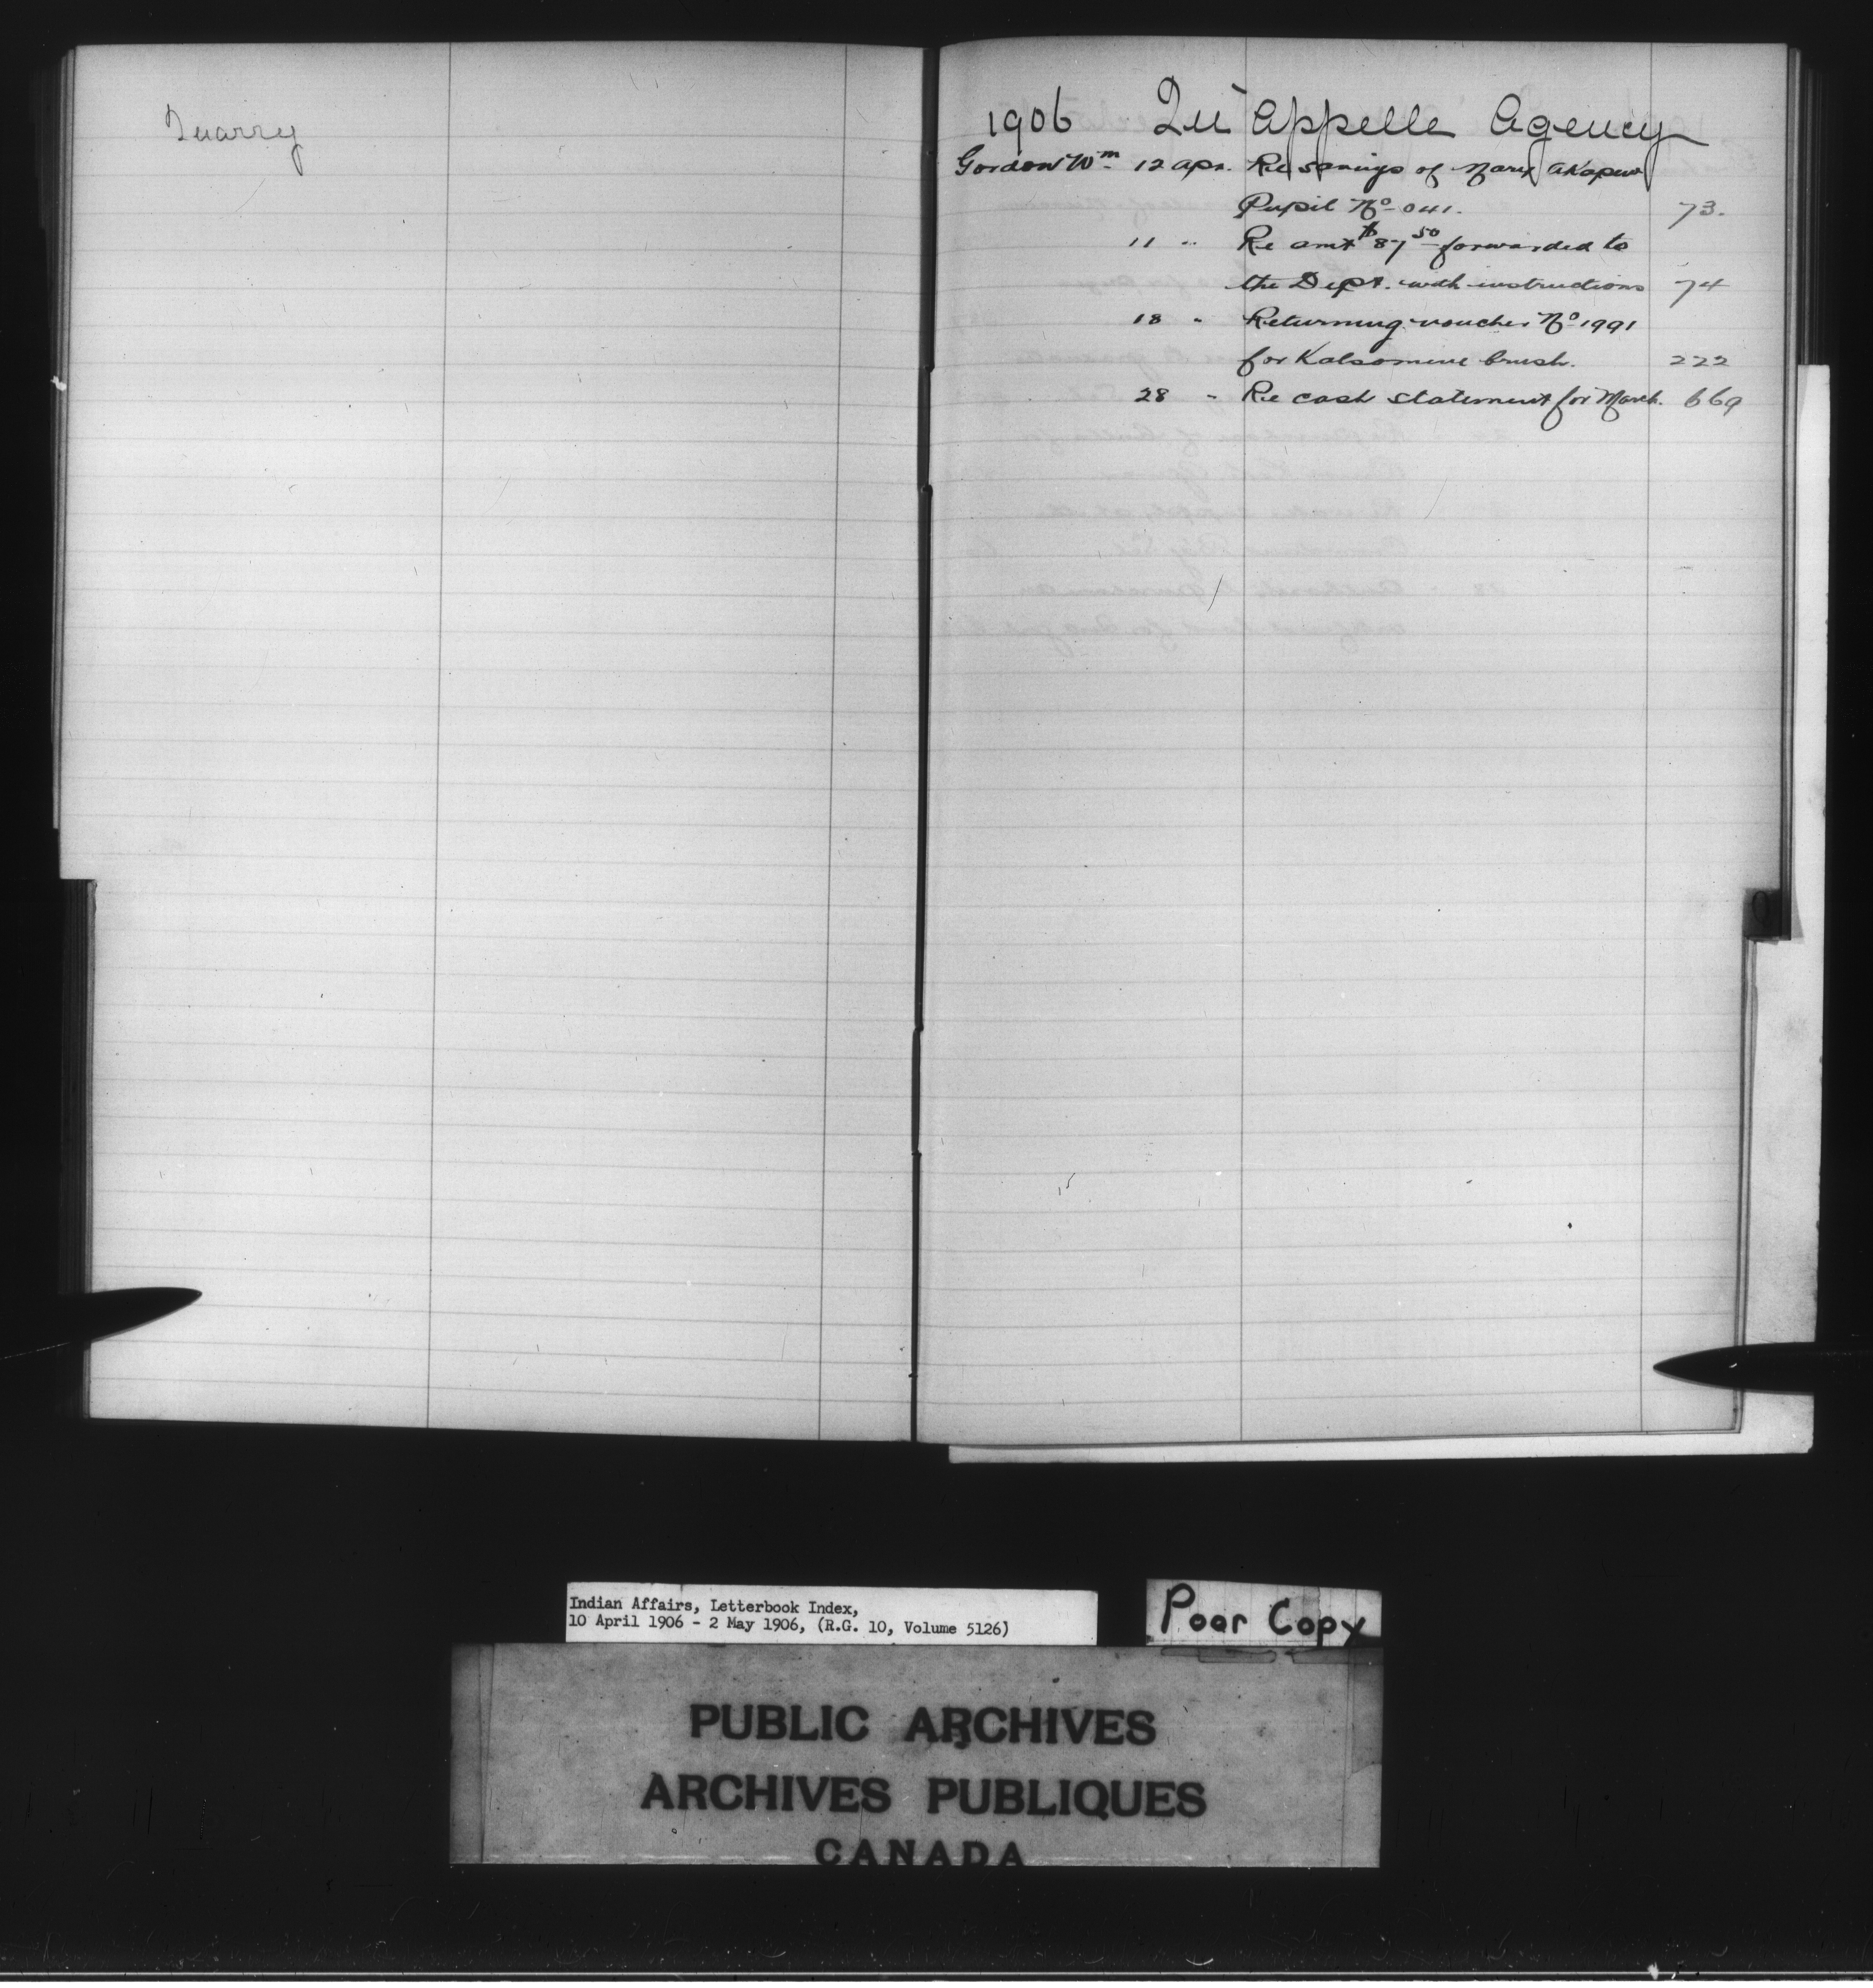 Quarry
1906 Qu'Appelle Agency
Gordon Wm 12 Apr. Re savings of Mary Akapew
Pupil No 041. 73.
11 " Re amt $87 50 forwarded to
the Dept. with instructions 74
18 " Returning voucher No 1991
for Kalsomine brush. 222
28 " Re cash statement for March. 669
Q
Indian Affairs, Letterbook Index,
10 April 1906 - 2 May 1906, (R.G. 10, Volume 5126)
Poor Copy
PUBLIC ARCHIVES
ARCHIVES PUBLIQUES
CANADA